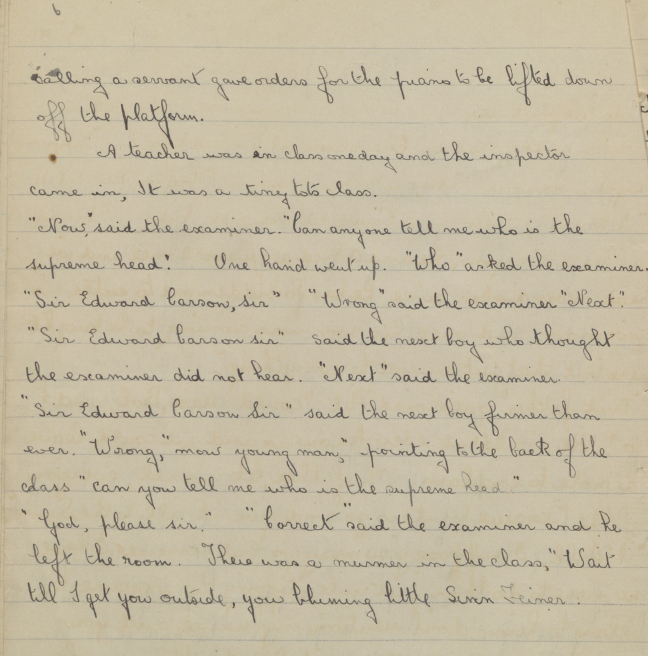 6
calling a servant gave orders for the piano to be lifted down
off the platform.
A teacher was in class one day and the inspector
came in, It was a tiny tots class.
"Now," said the examiner. "Can anyone tell me who is the
supreme head? One hand went up. "Who" asked the examiner.
"Sir Edward Carson, sir" "Wrong" said the examiner "Next".
"Sir Edward Carson sir" said the next boy who thought
the examiner did not hear. "Next" said the examiner.
"Sir Edward Carson Sir" said the next boy firmer than
ever. "Wrong," "now young man," pointing to the back of the
class "can you tell me who is the supreme head."
"God, please sir." "Correct" said the examiner and he
left the room. There was a murmer in the class, "Wait
till I get you outside, you bluming little Sinn Feiner.